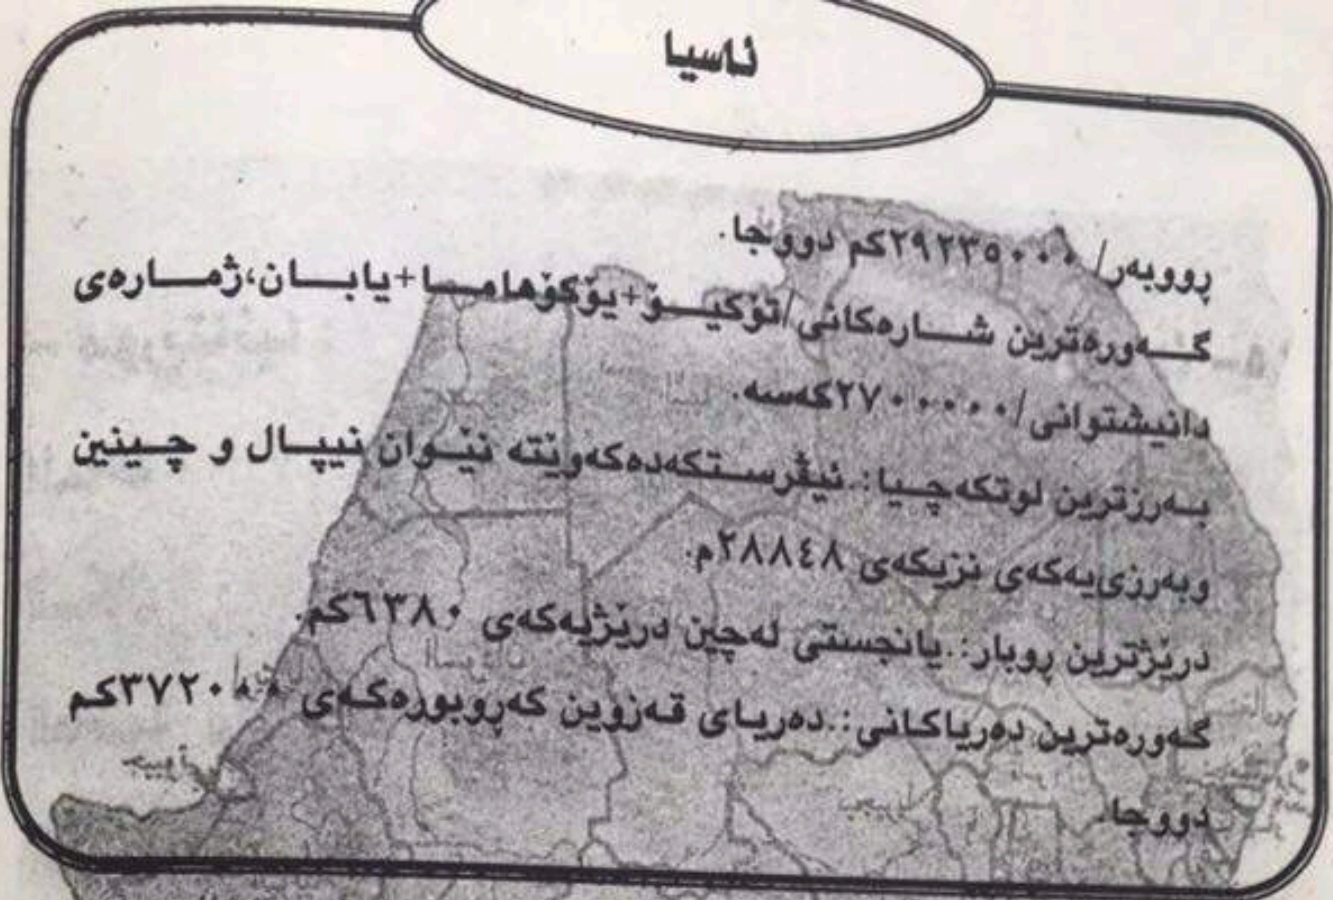 ئاسیا
ڕووبەر/ ٢٩٢٣٥٠٠٠کم دووجا.
گەورەترین شارەکانی/تۆکیۆ+یۆکۆهاما+یابان،ژمارەی
دانیشتوانی/٢٧٠٠٠٠٠٠کەسە.
بەرزترین لوتکەچیا:.ئیڤرستکەدەکەوێتە نێوان نیپال و چینین
وبەرزیيەکەی نزیکەی ٢٨٨٤٨م.
درێژترین ڕوبار:.یانجستی لەچین درێژیەکەی ٦٣٨٠کم.
گەورەترین دەریاکانی:.دەریای قەزوین کەڕوبورەکەی ٣٧٢٠٠٠کم
دووجا.